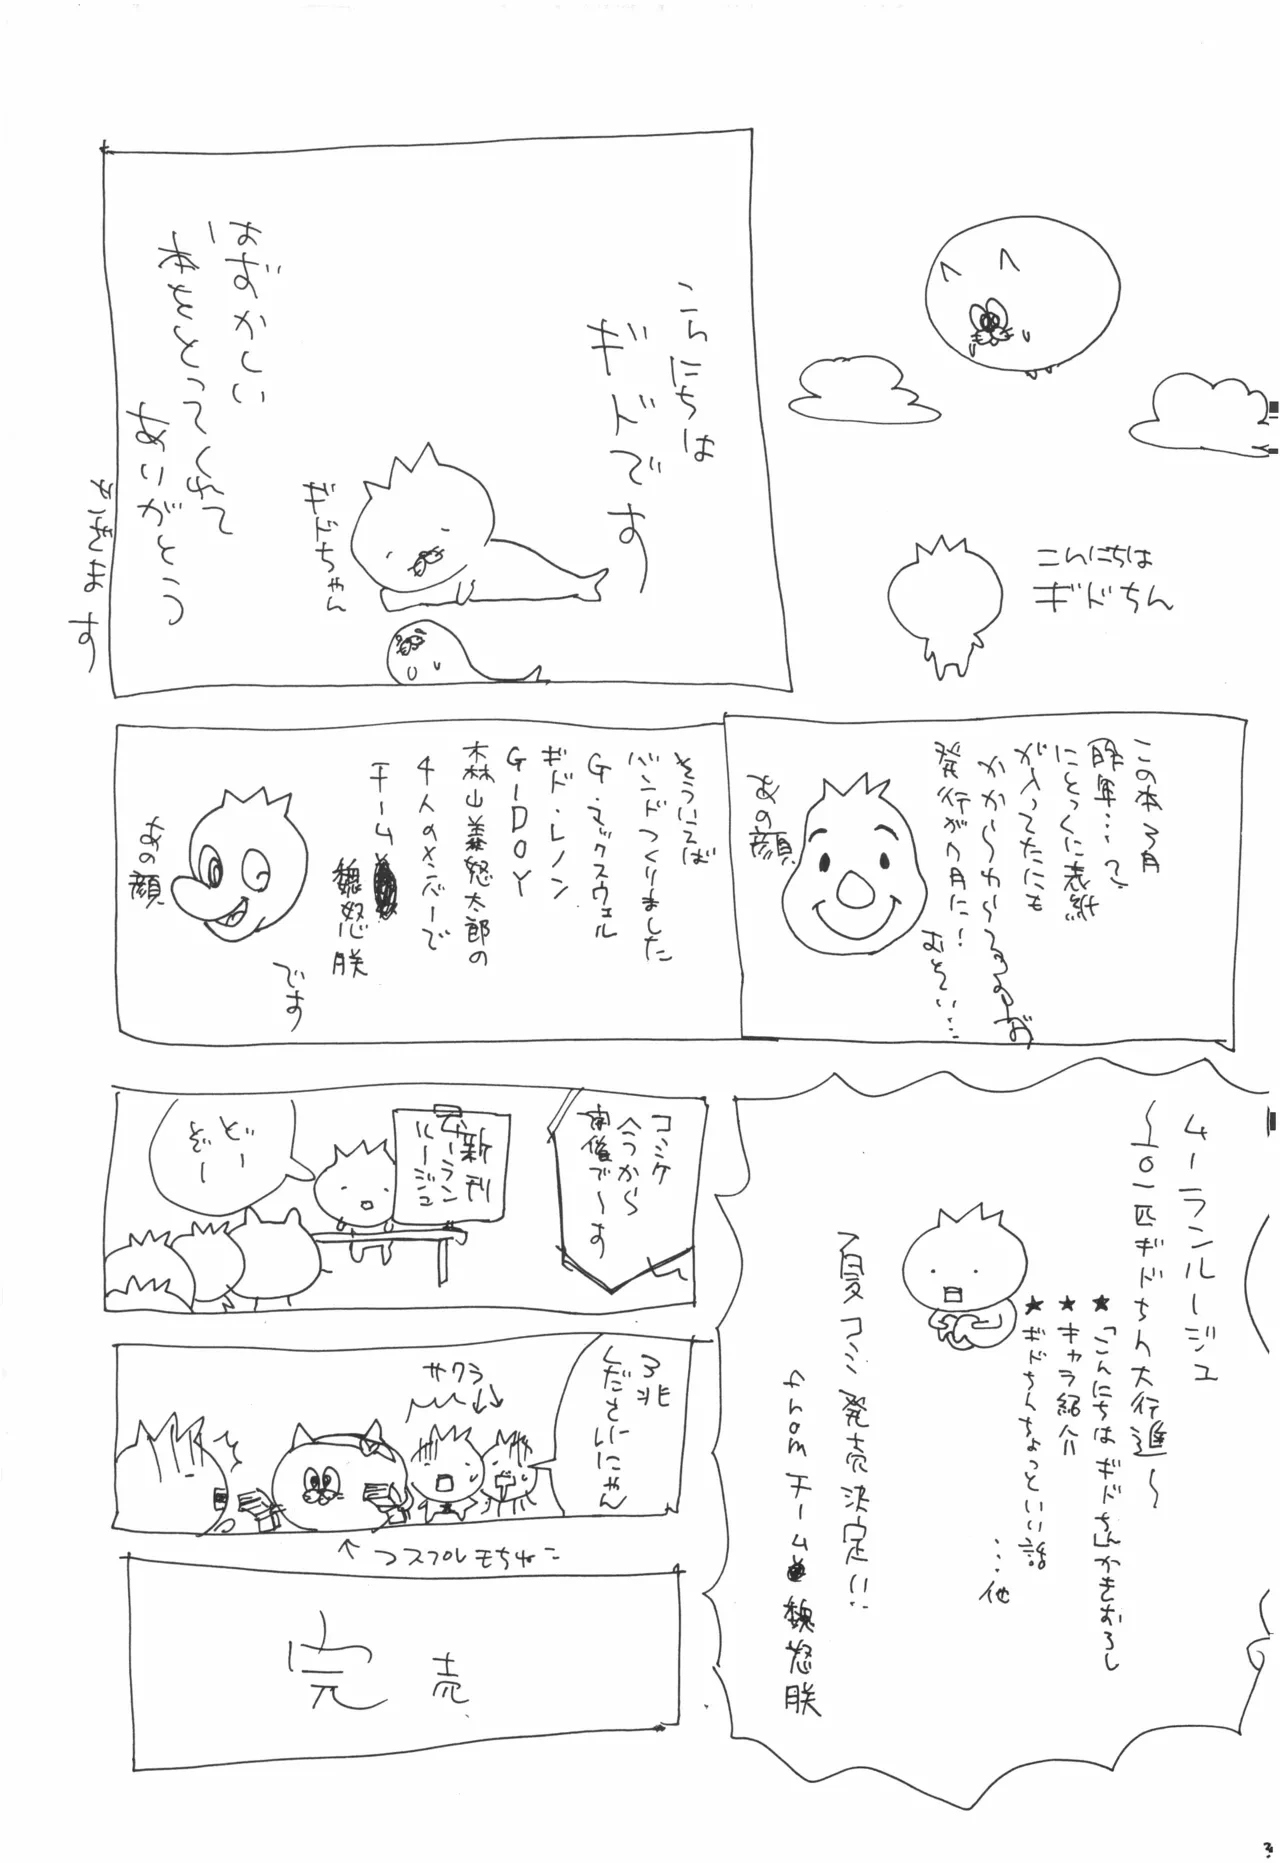 こんにちは
ギドちん
こんにちは
ギドです
ギドちゃん
はずかしい
本をとってくれて
ありがとう
この本3月
にとっくに表紙
が入ってたにも
かからわらるのず
発行が7月に!
むごい…
あの顔
そういえば
バンドつくりました
G・マックスウェル
ギド・レノン
G-DOY
森山義怒太郎の
4人のメンバーで
チーム
魏怒朕
です
あの顔
ムーランルージュ
〜101匹ギドちん大行進〜
★「こんにちはギドちん」かきおろし
★キャラ紹介
★ギドちんちょっといい話
…他
夏コミ発売決定!!
from チーム魏怒朕
コミケ
今から
開催で〜す
新刊
ムーラン
ルージュ
どー
ぞー
3兆
くださいにゃん
サクラ
↑コスプレもちねこ
完売